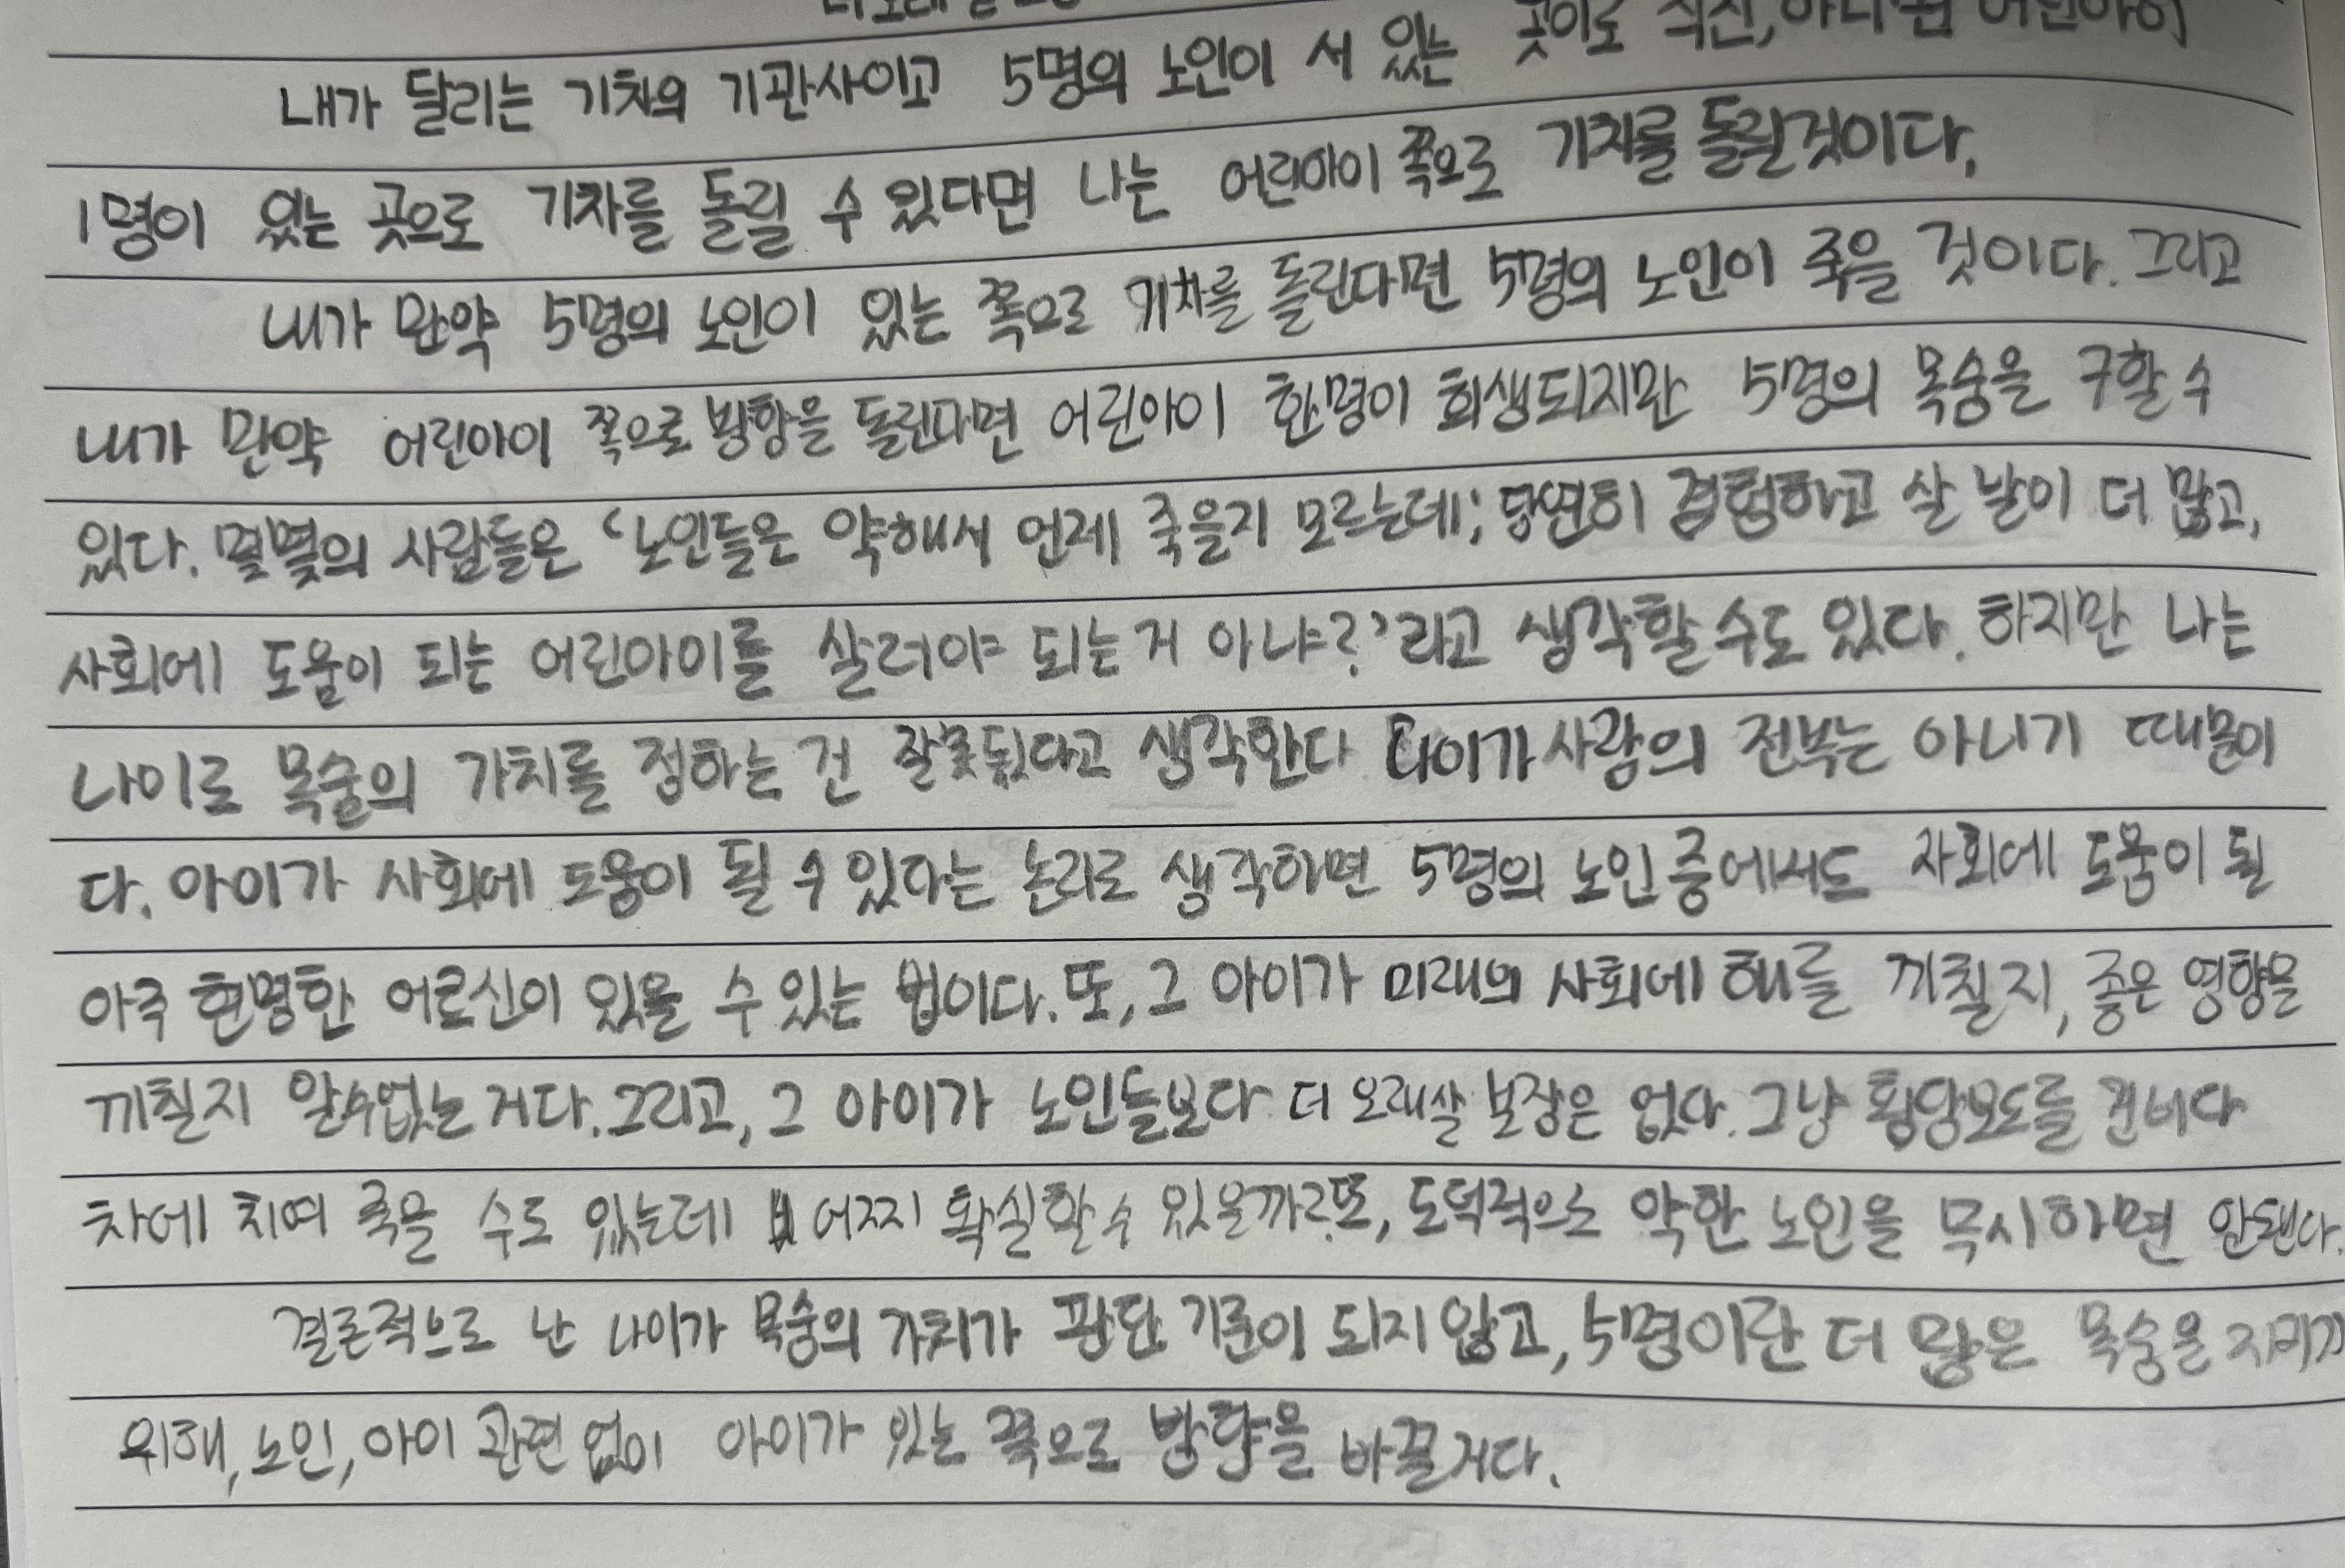 더 오래
내가 달리는 기차의 기관사이고 5명의 노인이 서 있는 곳이로 직진, 아니면 어린아이
1명이 있는 곳으로 기차를 돌릴 수 있다면 나는 어린아이 쪽으로 기차를 돌릴것이다.
내가 만약 5명의 노인이 있는 쪽으로 기차를 돌린다면 5명의 노인이 죽을 것이다. 그리고
내가 만약 어린아이 쪽으로 방향을 돌린다면 어린아이 한명이 희생되지만 5명의 목숨을 구할 수
있다. 몇몇의 사람들은 '노인들은 약해서 언제 죽을지 모르는데; 당연히 경험하고 살 날이 더 많고,
사회에 도움이 되는 어린아이를 살려야 되는 거 아냐?'라고 생각할 수도 있다. 하지만 나는
나이로 목숨의 가치를 정하는 건 잘못됬다고 생각한다 나이가 사람의 전부는 아니기 때문이
다. 아이가 사회에 도움이 될 수 있다는 논리로 생각하면 5명의 노인 중에서도 사회에 도움이 될
아주 현명한 어르신이 있을 수 있는 법이다. 또, 그 아이가 미래의 사회에 해를 끼칠지, 좋은 영향을
끼칠지 알수없는 거다. 그리고, 그 아이가 노인들보다 더 오래살 보장은 없다. 그냥 횡단보도를 건너다
차에 치여 죽을 수도 있는데 어찌 확실할 수 있을까? 또, 도덕적으로 약한 노인을 무시하면 안됀다.
결론적으로 난 나이가 목숨의 가치가 판단 기준이 되지 않고, 5명이란 더 많은 목숨을 지키기
위해, 노인, 아이 관련 없이 아이가 있는 쪽으로 방향을 바꿀거다.